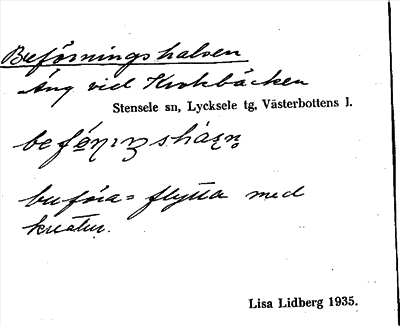 Buförningshalsen
Äng vid Krokbäcken
Stensele sn, Lycksele tg, Västerbottens l.
buföra = flytta med
kreatur.
Lisa Lidberg 1935.